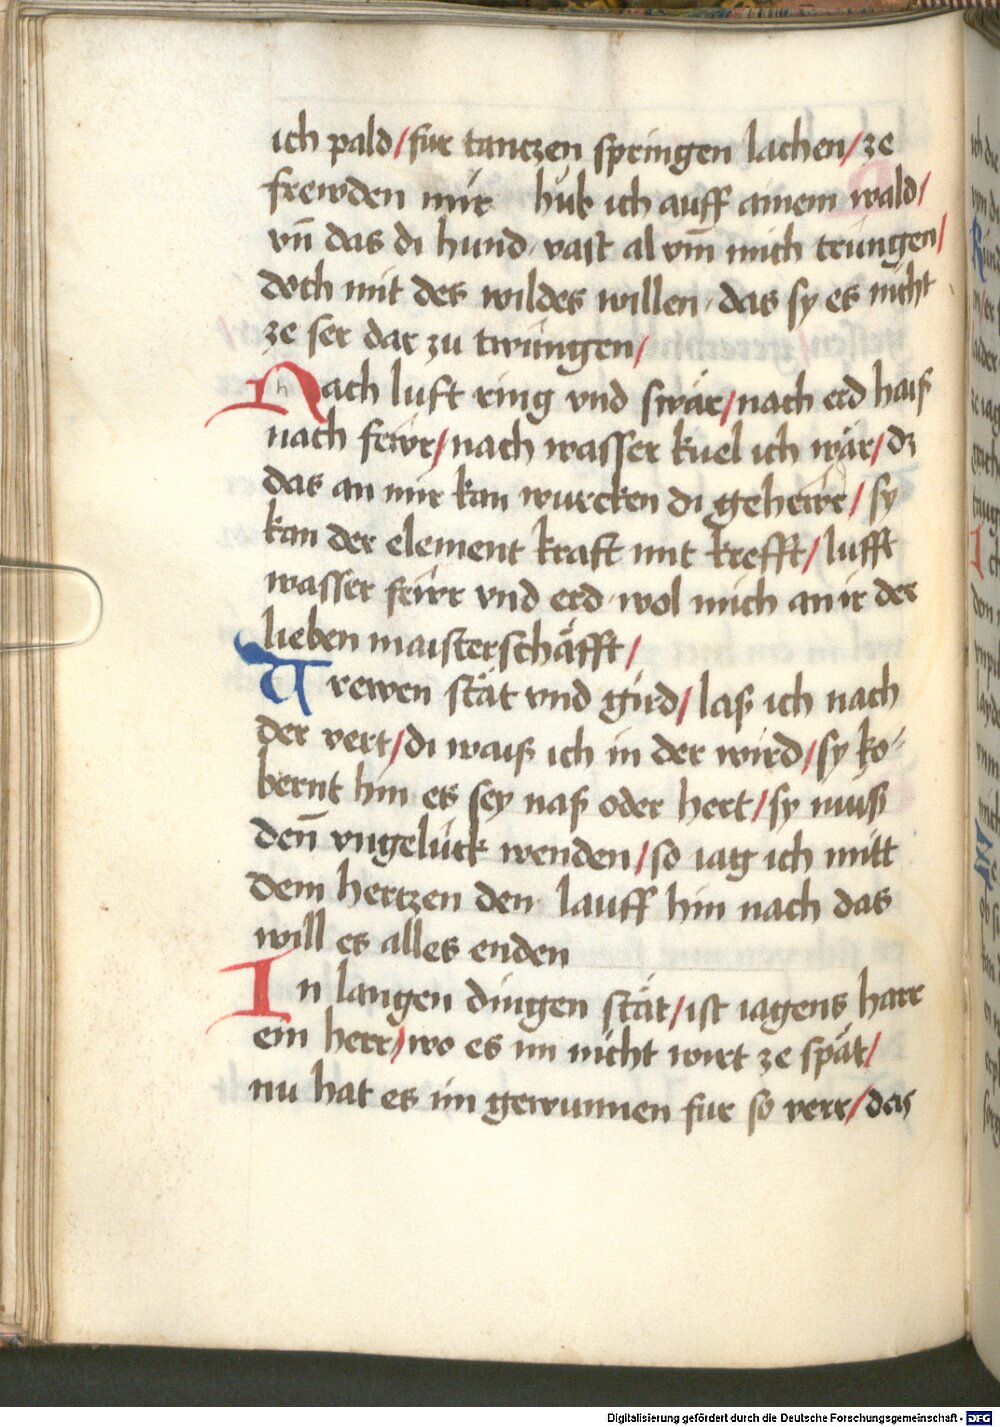 ich pald/fur tanczen springen lachen/ze
frewden mir hub ich auff ainem wald/
vn̄ das di hund vast al vm̄ mich trungen/
doch mit des wildes willen das sy es nicht
ze ser dar zu twungen/
Nach luft ring vnd swär/nach erd haiß
nach fewr/nach wasser kuel ich wär/di
das an mir kan wurcken di gehewr/sy
kan der element kraft mit krefft/lufft
wasser fewr vnd erd wol mich an ir der
lieben maisterschäfft/
Trewen stät vnd gird/laß ich nach
der vert/di waiß ich in der wird/sy ko-
bernt hin es sey naß oder hert/sy muß
den̄ vngelück wenden/so iag ich mitt
dem hertzen den lauff hin nach das
will es alles enden
In langen dingen stät/ist iagens harr
ein herr/wo es im nicht wirt ze spät/
nu hat es im gewunnen fur so verr/das
Digitalisierung gefördert durch die Deutsche Forschungsgemeinschaft - DFG